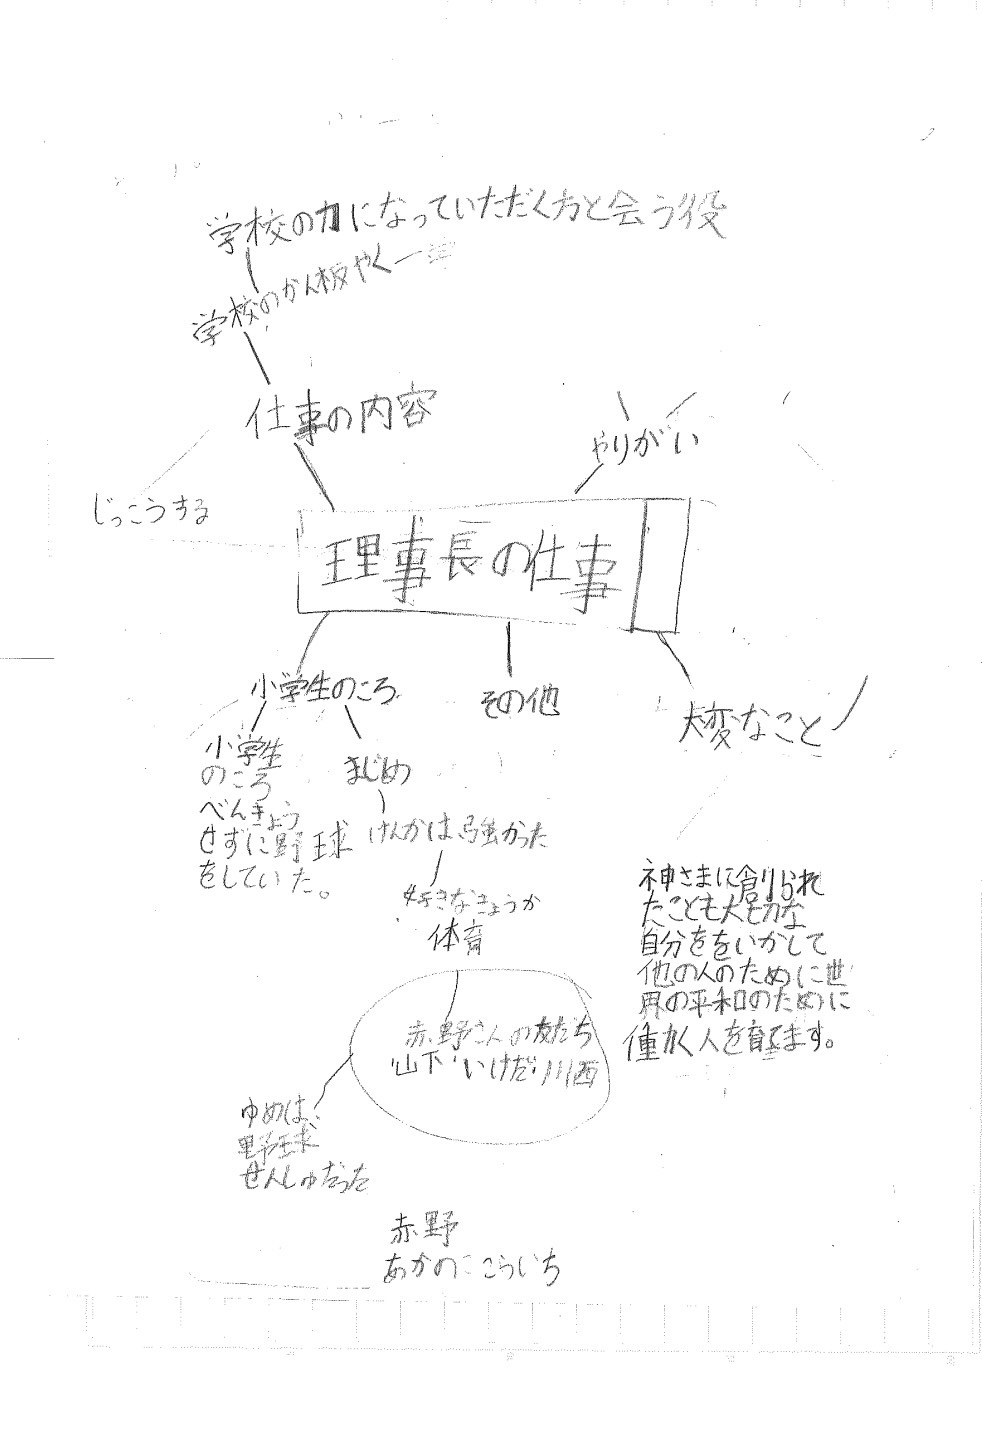 学校の力になっていただく方と会う役
学校のかん板やく
仕事の内容
やりがい
じっこうする
理事長の仕事
小学生のころ
その他
大変なこと
小学生
のころ
べんきょう
せずに野球
をしていた。
まじめ
けんかは強かった
好きなきょうか
体育
神さまに創られ
たことも大切な
自分ををいかして
他の人のために世
界の平和のために
働かく人を育てます。
赤野さんの友だち
山下 いけだ 川西
ゆめは、
野球
せんしゅだった
赤野
あかの こういち